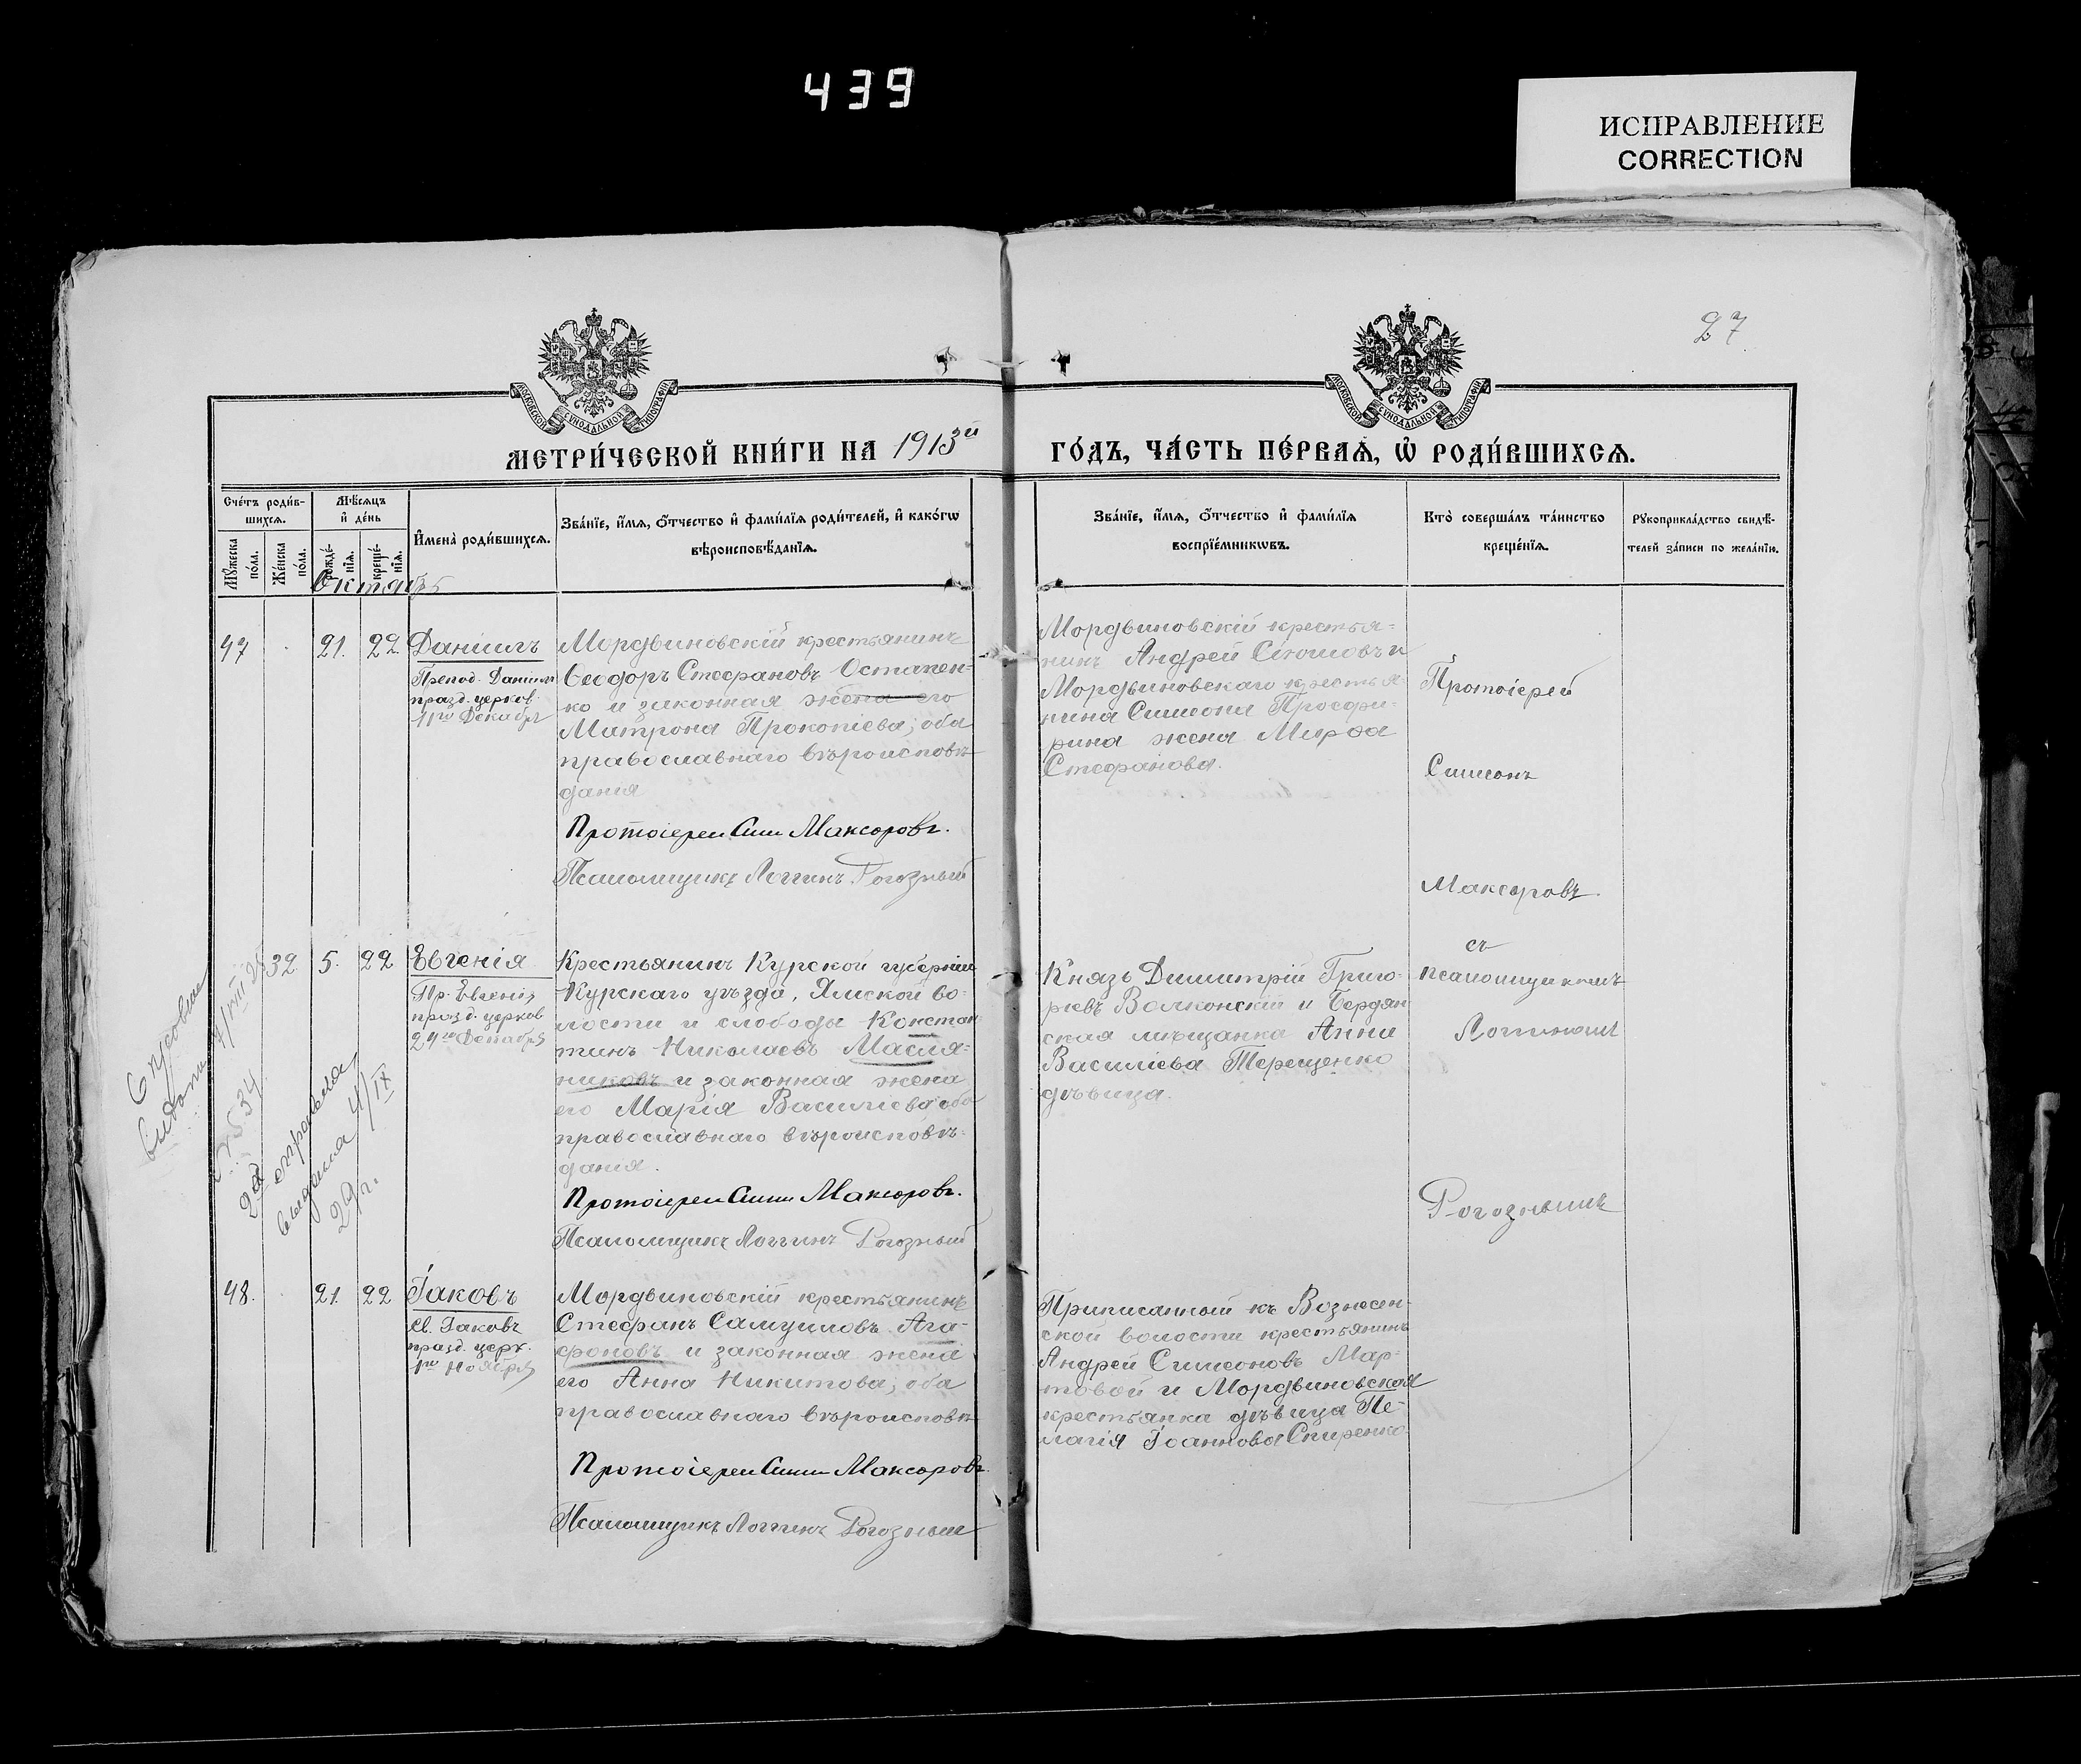 439
ИСПРАВЛЕНИЕ
CORRECTION
27
МОСКОВСКОЙ СѴНОДАЛЬНОЙ ТИПОГРАФІИ
МОСКОВСКОЙ СѴНОДАЛЬНОЙ ТИПОГРАФІИ
МЕТРИ́ЧЕСКОЙ КНИ́ГИ НА 1913й
ГО́ДЪ, ЧА́СТЬ ПЕ́РВАѦ, Ѡ҆ РОДИ́ВШИХСѦ.
Сче́тъ роди́в-
шихсѧ.
Мѣ́сѧцъ
и҆ де́нь
Мꙋ́жеска
по́ла.
Же́нска
по́ла.
рожде́-
нїѧ.
креще́-
нїѧ.
И҆мена̀ роди́вшихсѧ.
Зва́нїе, и҆́мѧ, ѻ҆́тчество и҆ фами́лїѧ роди́телей, и҆ како́гѡ
вѣроисповѣ́данїѧ.
Зва́нїе, и҆́мѧ, ѻ҆́тчество и҆ фами́лїѧ
воспрїе́мникѡвъ.
Кто̀ соверша́лъ та́инство
креще́нїѧ.
Рꙋкоприкла́дство свидѣ́-
телей за́писи по жела́нїю.
Октябрь
47 21. 22 Даніилъ
Препод. Даніил
празд. церков.
11го Декабря
Мордвиновскій крестьянинъ
Ѳеодоръ Стефановъ Остапен-
ко и законная жена его
Матрона Прокопіева, оба
православнаго вѣроисповѣ-
данія
Протоіерей Сим Максоровъ.
Псаломщикъ Логгинъ Рогозный
Мордвиновскій крестья-
нинъ Андрей и
Мордвиновскаго крестья-
нина Симеона
жена Марѳа
Стефанова.
Протоіерей
Симеонъ
Максоровъ.
съ
псаломщикомъ
Логгиномъ
Рогознымъ
32 5. 22 Евгенія
Пр. Евгенія
празд. церков
24го Декабря
Крестьянинъ Курской губерніи
Курскаго уѣзда, Ямской во-
лости и слободы Констан
тинъ Николаевъ Масля-
никовъ и законная жена
его Марія Василіева оба
православнаго вѣроисповѣ-
данія.
Протоіерей Сим Максоровъ.
Псаломщикъ Логгинъ Рогозный
Князь Димитрій Григо-
ріевъ Волконскій и Бердян
ская мѣщанка Анна
Василіева Терещенко
дѣвица.
2а
выдана 4/IX
29 г.
48. 21. 22 Іаковъ
Св. Іаковъ
празд. церк.
1го Ноября
Мордвиновскій крестьянинъ
Стефанъ Самуиловъ Ага-
фоновъ и законная жена
его Анна Никитова, оба
православнаго вѣроисповѣ-
Протоіерей Сим Максоровъ.
Псаломщикъ Логгинъ Рогозный
Приписанный къ Вознесен-
ской волости крестьянинъ
Андрей Симеоновъ Мар-
товой и Мордвиновская
крестьянка дѣвица Пе-
лагія Іоаннова Спиренко